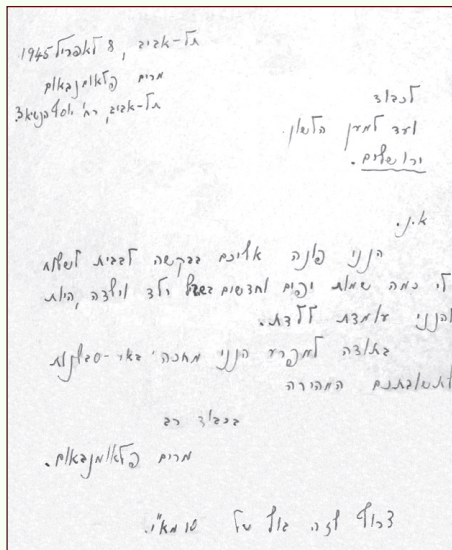 תל-אביב, 8 לאפריל 1945
מרים פלאומנבאום
תל-אביב, רח' יוסף הנשיא 3.
לכבוד
ועד למען הלשון.
ירושלים.
א.נ.
הנני פונה אליכם בבקשה לבבית לשלוח
לי כמה שמות יפים וחדשים בשביל ילד וילדה, היות
והנני עומדת ללדת.
בתודה למפרע הנני מחכה באי-סבלנות
לתשובתכם המהירה
בכבוד רב
מרים פלאומנבאום.
צרוף לזה בול של 10 מא"י.